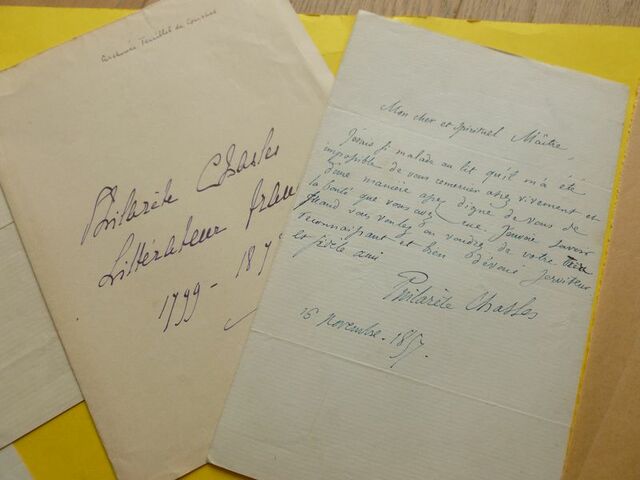 Philarète Chasles
Littérateur
1799 - 187
Mon cher et spirituel Maître,
J'étais si malade au lit qu'il m'a été
impossible de vous remercier assez vivement et
d'une manière assez digne de vous de
la bonté que vous avez eue
quand vous voulez ou voudrez de votre
reconnaissant et bien dévoué serviteur
et ami
Philarète Chasles
16 novembre. 1857.